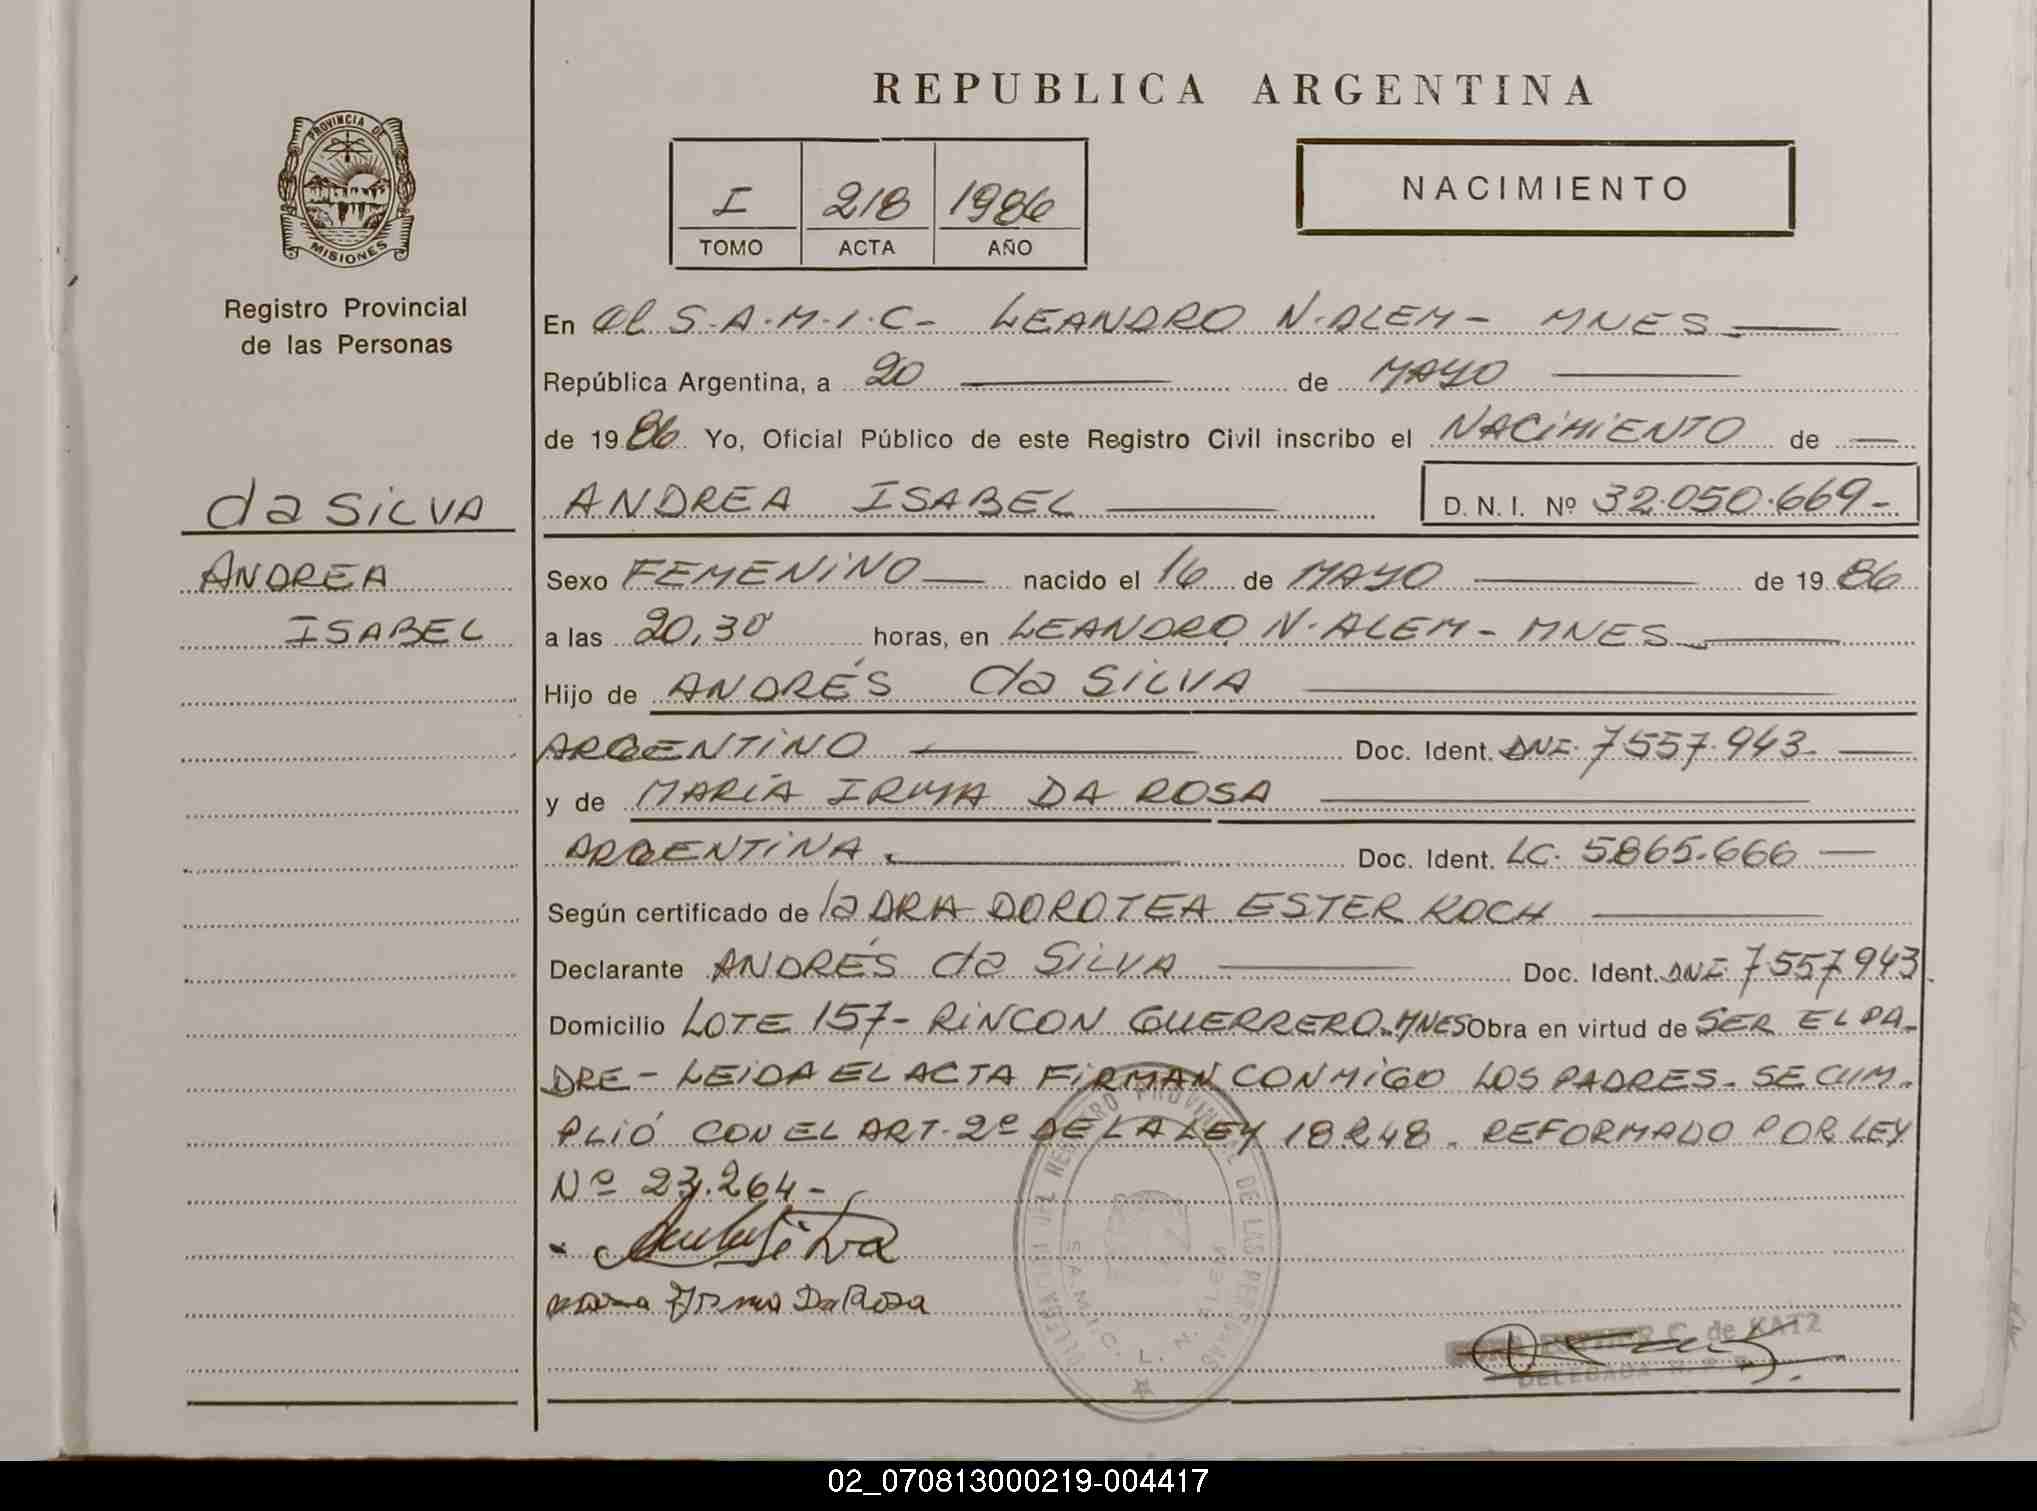 REPUBLICA ARGENTINA
PROVINCIA DE
MISIONES
Registro Provincial
de las Personas
I 218 1986
TOMO ACTA AÑO
NACIMIENTO
da SILVA
ANDREA
ISABEL
En el S.A.M.I.C- LEANDRO N. ALEM - MNES
República Argentina, a 20 de MAYO
de 1986. Yo, Oficial Público de este Registro Civil inscribo el NACIMIENTO de
ANDREA ISABEL D. N. I. Nº 32.050.669-
Sexo FEMENINO nacido el 16 de MAYO de 1986
a las 20,30 horas, en LEANDRO N. ALEM - MNES
Hijo de ANDRÉS da SILVA
ARGENTINO Doc. Ident. DNI. 7557.943
y de MARÍA IRMA DA ROSA
ARGENTINA. Doc. Ident. LC. 5865.666
Según certificado de la DRA DOROTEA ESTER KOCH
Declarante ANDRÉS da SILVA Doc. Ident. DNI 7557943
Domicilio LOTE 157- RINCON GUERRERO. MNES Obra en virtud de SER EL PA-
DRE - LEIDA EL ACTA FIRMAN CONMIGO LOS PADRES. SE CUM-
PLIÓ CON EL ART. 2º DE LA LEY 18248. REFORMADO POR LEY
Nº 23.264-
Silva
maria Irma Da Rosa
REGISTRO PROVINCIAL DE LAS PERSONAS
S.A.M.I.C. L. N. ALEM
C. de KATZ
DELEGADA R. P. P.
02_070813000219-004417